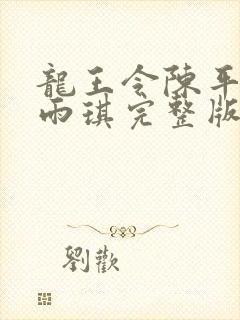 龍王令陳平
雨琪完整版
劉歡